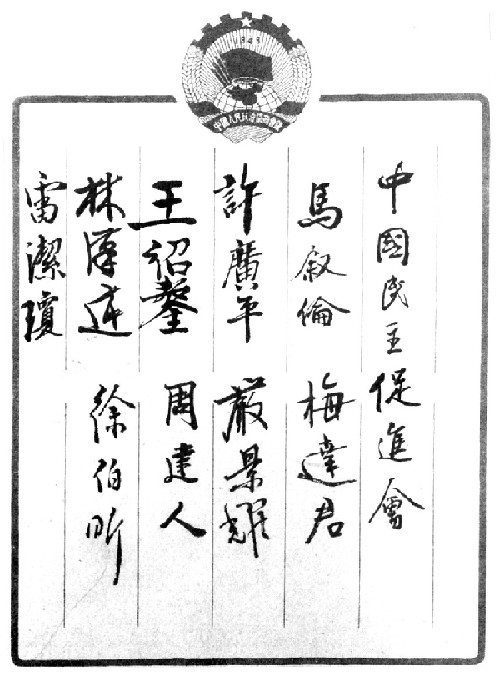 1949
中國人民政治協商會議
中國民主促進會
馬叙倫 梅達君
許廣平 嚴景耀
王紹鏊 周建人
林漢達 徐伯昕
雷潔瓊